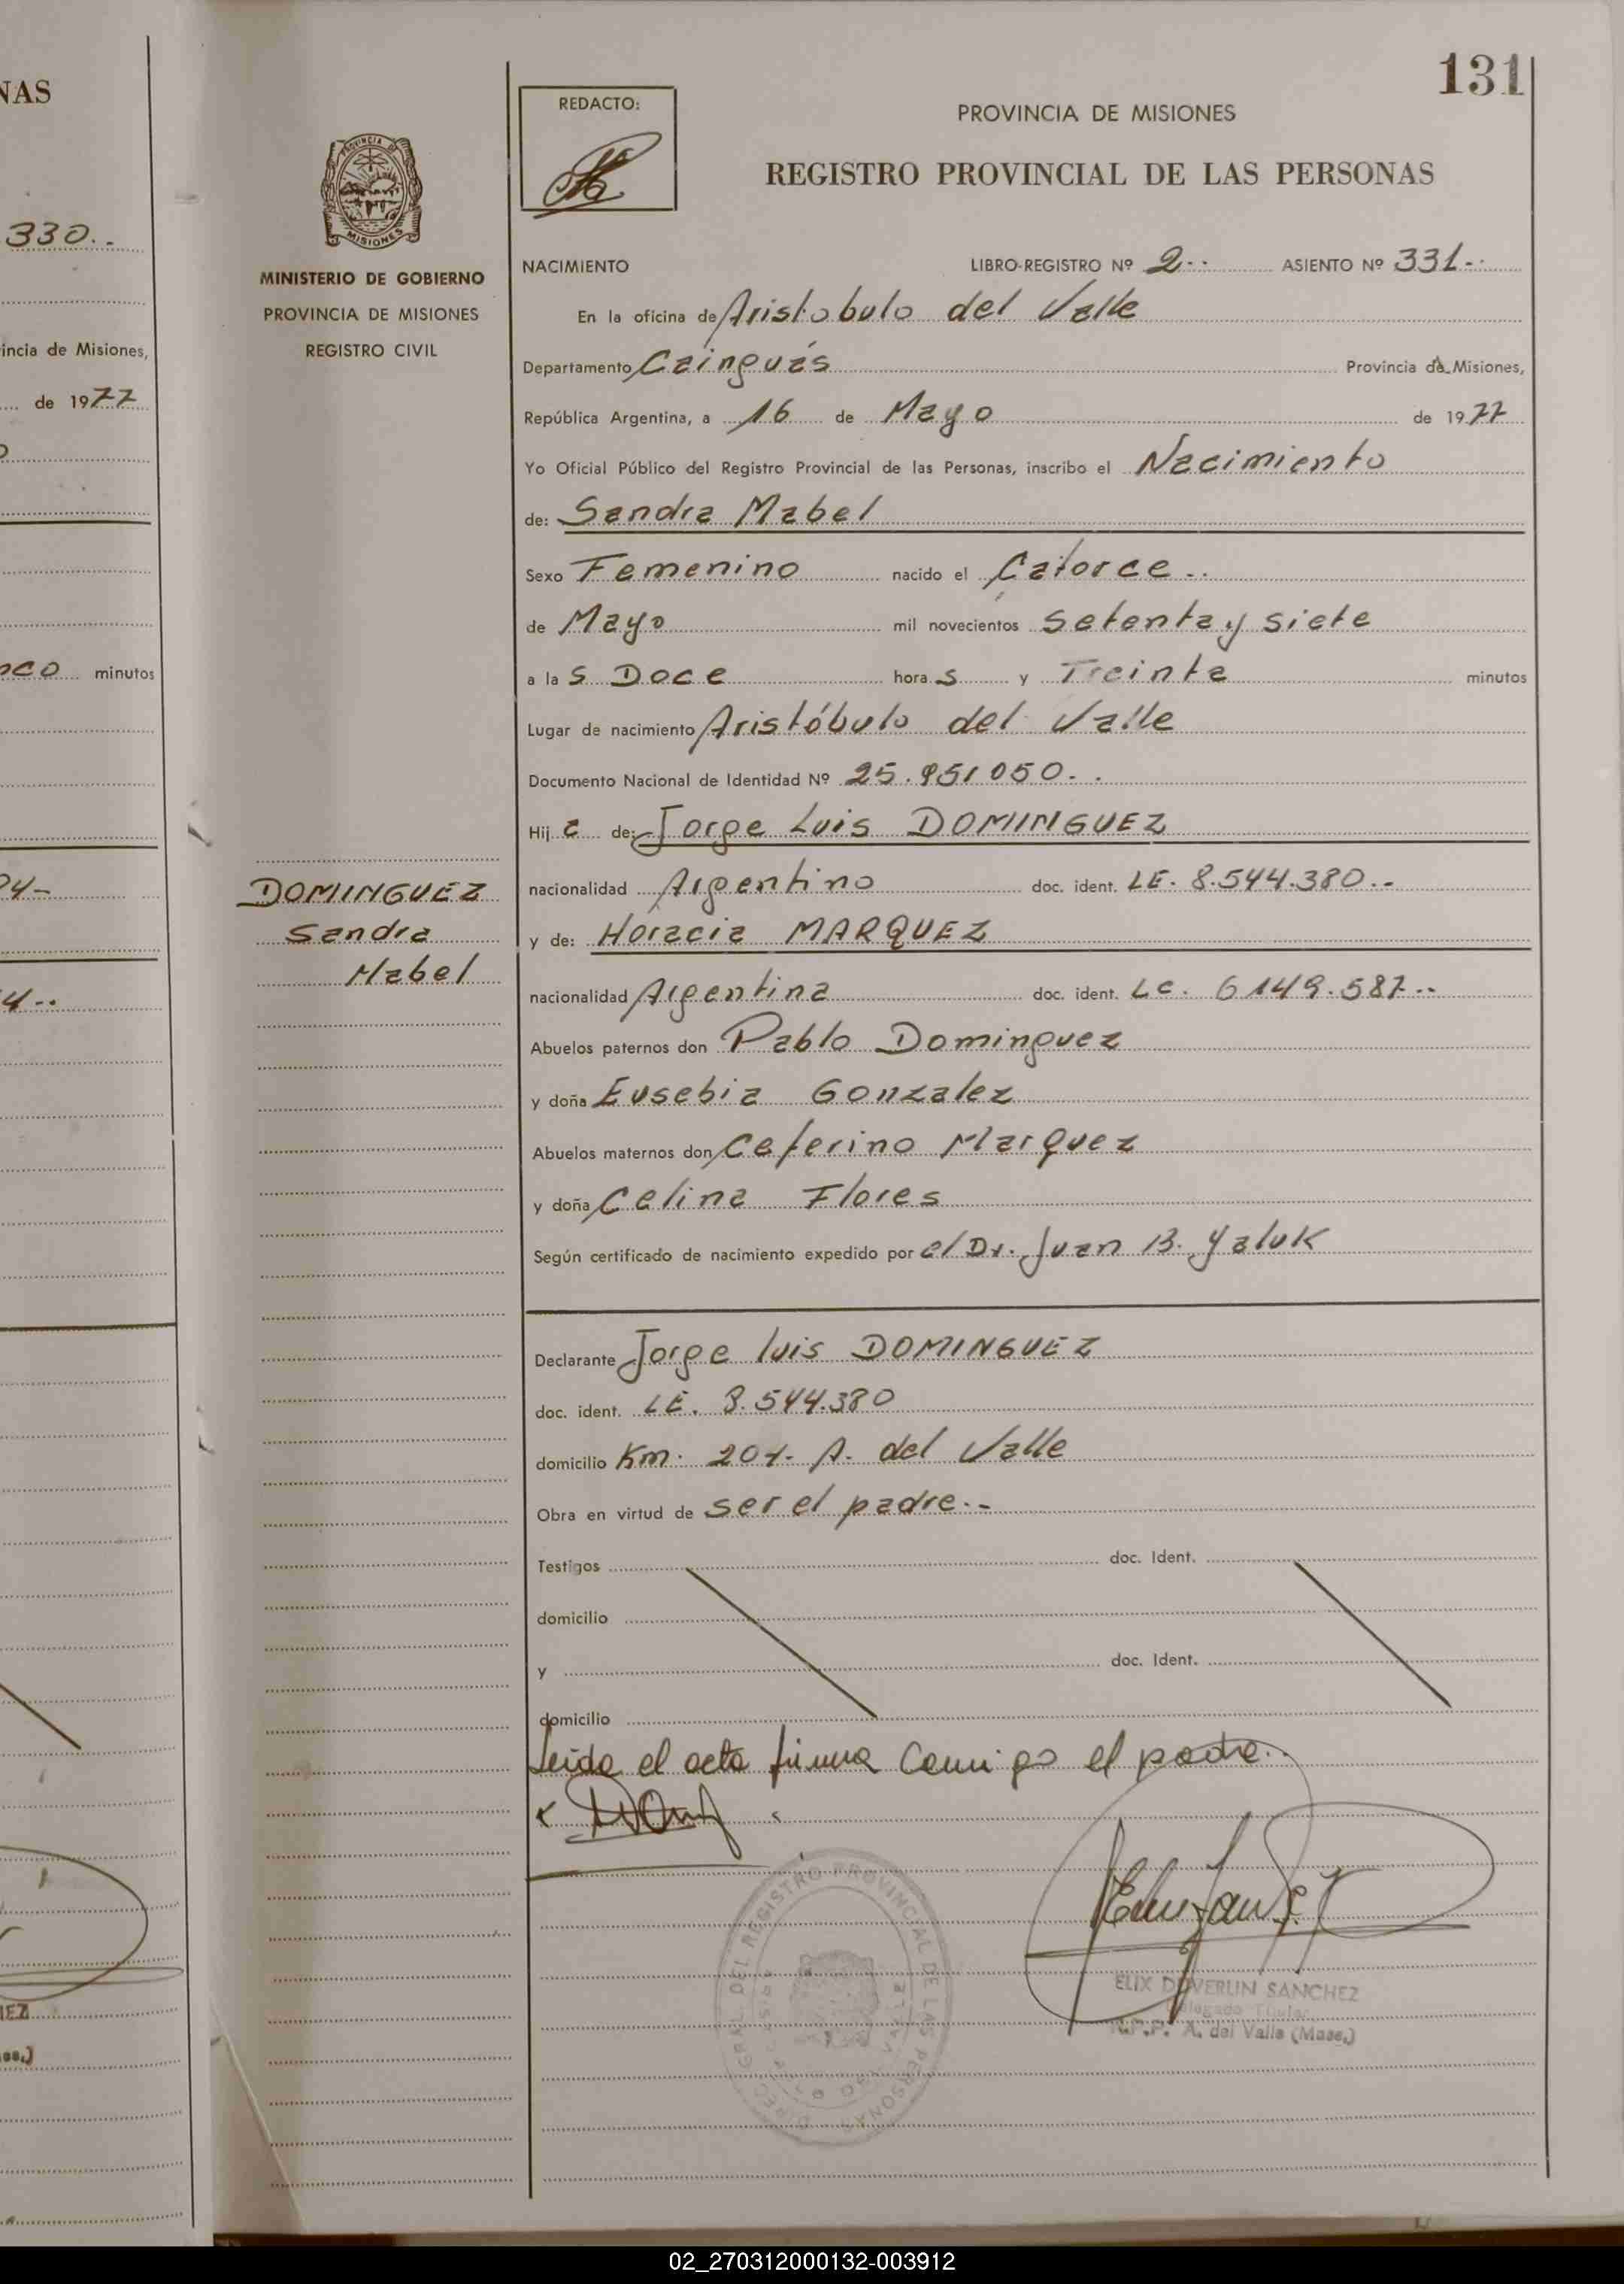 NAS
330..
incia de Misiones,
de 1977
nco minutos
94-
4--
NEZ
es.)
131
REDACTO:
PROVINCIA DE MISIONES
REGISTRO PROVINCIAL DE LAS PERSONAS
PROVINCIA DE
MISIONES
MINISTERIO DE GOBIERNO
PROVINCIA DE MISIONES
REGISTRO CIVIL
DOMINGUEZ
Sandra
Mabel
NACIMIENTO LIBRO-REGISTRO Nº 2-- ASIENTO Nº 331--
En la oficina de Aristobulo del Valle
Departamento Cainguás Provincia de Misiones,
República Argentina, a 16 de Mayo de 1977
Yo Oficial Público del Registro Provincial de las Personas, inscribo el Nacimiento
de: Sandra Mabel
Sexo Femenino nacido el Catorce..
de Mayo mil novecientos setenta y siete
a la s Doce hora s y Treinta minutos
Lugar de nacimiento Aristóbulo del Valle
Documento Nacional de Identidad Nº 25.951050-.
Hij a de: Jorge Luis DOMINGUEZ
nacionalidad Argentino doc. ident. LE. 8.544.380--
y de: Horacia MARQUEZ
nacionalidad Argentina doc. ident. LC. 6149.587--
Abuelos paternos don Pablo Dominguez
y doña Eusebia Gonzalez
Abuelos maternos don Ceferino Marquez
y doña Celina Flores
Según certificado de nacimiento expedido por el Dr. Juan B. Yaluk
Declarante Jorge luis DOMINGUEZ
doc. ident. LE. 8.544.380
domicilio Km. 204- A. del Valle
Obra en virtud de ser el padre.-
Testigos doc. Ident.
domicilio
y doc. Ident.
domicilio
Leida el acta firma conmigo el padre..
DIREC. GRAL. DEL REGISTRO PROVINCIAL DE LAS PERSONAS
ELIX DOVERLIN SANCHEZ
Delegado Titular
R.P.P. A. del Valle (Mnes.)
02_270312000132-003912